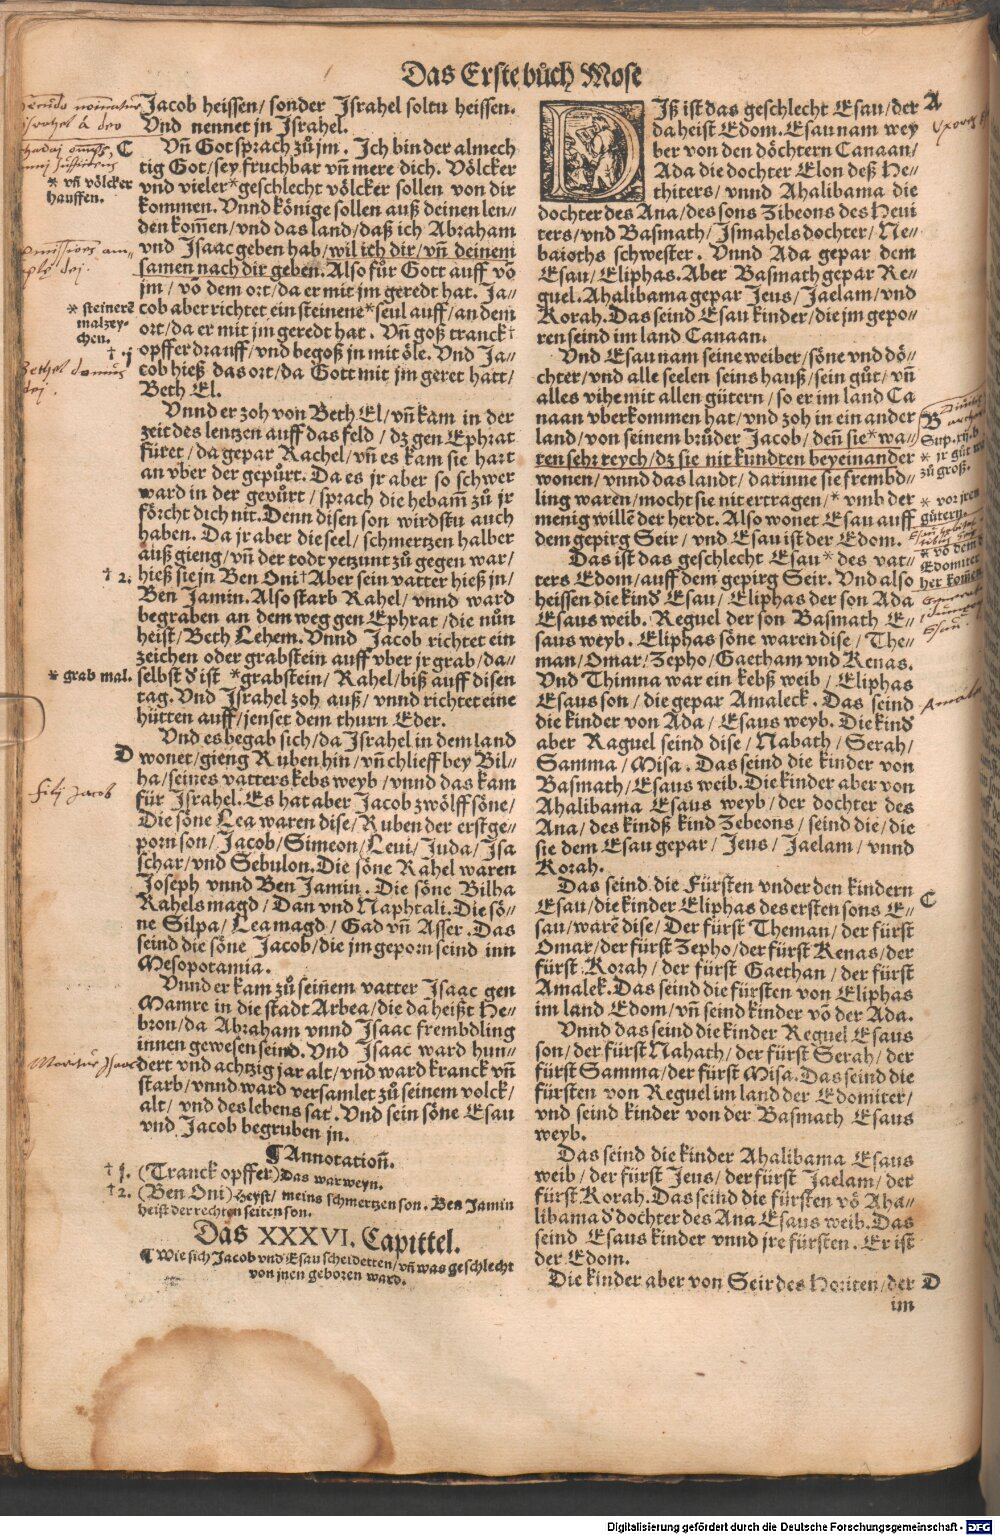 Das Erste bůch Mose
Jacob heissen/ sonder Jsrahel soltu heissen.
Vnd nennet jn Jsrahel.
C
Vñ Got sprach zů jm. Jch bin der almech
tig Got/ sey fruchbar vñ mere dich. Völcker
vnd vieler*geschlecht völcker sollen von dir
kommen. Vnnd könige sollen auß deinen len//
den kom̃en/ vnd das land/ daß ich Abraham
vnd Jsaac geben hab/ wil ich dir/ vñ deinem
samen nach dir geben. Also fůr Gott auff võ
jm/ võ dem ort/ da er mit jm geredt hat. Ja//
cob aber richtet ein steinene*seul auff/ an dem
ort/ da er mit jm geredt hat. Vñ goß tranck†
opffer drauff/ vnd begoß jn mit öle. Vnd Ja//
cob hieß das ort/ da Gott mit jm geret hatt/
Beth El.
Vnnd er zoh von Beth El/ vñ kam in der
zeit des lentzen auff das feld/ dz gen Ephrat
füret/ da gepar Rachel/ vñ es kam sie hart
an vber der gepůrt. Da es jr aber so schwer
ward in der gepůrt/ sprach die hebam̃ zů jr
förcht dich nit. Denn disen son wirdstu auch
haben. Da jr aber die seel/ schmertzen halber
auß gieng/ vñ der todt yetzunt zů gegen war/
hieß sie jn Ben Oni† Aber sein vatter hieß jn/
Ben Jamin. Also starb Rahel/ vnnd ward
begraben an dem weg gen Ephrat/ die nůn
heist/ Beth Lehem. Vnnd Jacob richtet ein
zeichen oder grabstein auff vber jr grab/ da//
selbst d̕ ist *grabstein/ Rahel/ biß auff disen
tag. Vnd Jsrahel zoh auß/ vnnd richtet eine
hütten auff/ jenset dem thurn Eder.
D
Vnd es begab sich/ da Jsrahel in dem land
wonet/ gieng Ruben hin/ vñ chlieff bey Bil//
ha/ seines vatters kebs weyb/ vnnd das kam
für Jsrahel. Es hat aber Jacob zwölff söne/
Die söne Lea waren dise/ Ruben der erstge//
porn son/ Jacob/ Simeon/ Leui/ Juda/ Jsa
schar/ vnd Sebulon. Die söne Rahel waren
Joseph vnnd Ben Jamin. Die söne Bilha
Rahels magd/ Dan vnd Naphtali. Die sö//
ne Silpa/ Lea magd/ Gad vñ Asser. Das
seind die söne Jacob/ die jm geporn seind inn
Mesopotamia.
Vnnd er kam zů seinem vatter Jsaac gen
Mamre in die stadt Arbea/ die da heißt He//
bron/ da Abraham vnnd Jsaac frembdling
innen gewesen seind. Vnd Jsaac ward hun//
dert vnd achtzig jar alt/ vnd ward kranck vñ
starb/ vnnd ward versamlet zů seinem volck/
alt/ vnd des lebens sat. Vnd sein söne Esau
vnd Jacob begruben jn.
¶ Annotation̄.
† j. (Tranck opffer) Das war weyn.
† 2. (Ben Oni) heyst/ meins schmertzen son. Ben Jamin
heist der rechten seiten son.
Das XXXVI. Capittel.
¶ Wie sich Jacob vnd Esau scheidetten/ vñ was geschlecht
von jnen geboren ward.
* vñ völcker
hauffen.
* steinerẽ
malzey-
chen.
† j
† 2.
* grab mal.
filij Jacob
DJß ist das geschlecht Esau/ der
A
da heist Edom. Esau nam wey
ber von den döchtern Canaan/
Ada die dochter Elon deß He//
thiters/ vnnd Ahalibama die
dochter des Ana/ des sons Zibeons des Heui
ters/ vnd Basmath/ Jsmahels dochter/ Ne//
baioths schwester. Vnnd Ada gepar dem
Esau/ Eliphas. Aber Basmath gepar Re//
guel. Ahalibama gepar Jeus/ Jaelam/ vnd
Korah. Das seind Esau kinder/ die jm gepo//
ren seind im land Canaan.
Vnd Esau nam seine weiber/ söne vnd dö//
chter/ vnd alle seelen seins hauß/ sein gůt/ vñ
alles vihe mit allen gütern/ so er im land Ca
naan vberkommen hat/ vnd zoh in ein ander
land/ von seinem brůder Jacob/ deñ sie*wa//
ren sehr reych/ dz sie nit kundten beyeinander
wonen/ vnnd das landt/ darinne sie frembd//
ling waren/ mocht sie nit ertragen/* vmb der
menig willẽ der herdt. Also wonet Esau auff
dem gepirg Seir/ vnd Esau ist der Edom.
Das ist das geschlecht Esau* des vat//
ters Edom/ auff dem gepirg Seir. Vnd also
heissen die kind̕ Esau/ Eliphas der son Ada
Esaus weib. Reguel der son Basmath E//
saus weyb. Eliphas söne waren dise/ The//
man/ Omar/ Zepho/ Gaetham vnd Kenas.
Vnd Thimna war ein kebß weib/ Eliphas
Esaus son/ die gepar Amaleck. Das seind
die kinder von Ada/ Esaus weyb. Die kind̕
aber Raguel seind dise/ Nabath/ Serah/
Samma/ Misa. Das seind die kinder von
Basmath/ Esaus weib. Die kinder aber von
Ahalibama Esaus weyb/ der dochter des
Ana/ des kindß kind Zebeons/ seind die/ die
sie dem Esau gepar/ Jeus/ Jaelam/ vnnd
Korah.
Das seind die Fürsten vnder den kindern
C
Esau/ die kinder Eliphas des ersten sons E//
sau/ warẽ dise/ Der fürst Theman/ der fürst
Omar/ der fürst Zepho/ der fürst Kenas/ der
fürst Korah/ der fürst Gaethan/ der fürst
Amalek. Das seind die fürsten von Eliphas
im land Edom/ vñ seind kinder võ der Ada.
Vnnd das seind die kinder Reguel Esaus
son/ der fürst Nahath/ der fürst Serah/ der
fürst Samma/ der fürst Misa. Das seind die
fürsten von Reguel im land der Edomiter/
vnd seind kinder von der Basmath Esaus
weyb.
Das seind die kinder Ahalibama Esaus
weib/ der fürst Jeus/ der fürst Jaelam/ der
fürst Korah. Das seind die fürsten võ Aha//
libama d̕ dochter des Ana Esaus weib. Das
seind Esaus kinder vnnd jre fürsten. Er ist
der Edom.
Die kinder aber von Seir des Horiten/ der
D
im
B
Sup. xij. b
* jr gůt
zů groß.
* vor jren
gütern.
* võ dem d̕
Edomiter
her kom̃en
Digitalisierung gefördert durch die Deutsche Forschungsgemeinschaft - DFG